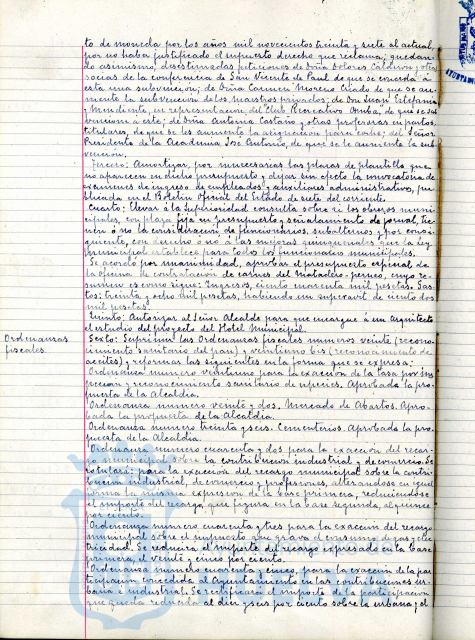 to de moneda por los años mil novecientos treinta y siete al actual,
por no haber justificado el supuesto derecho que reclama; quedan-
do asimismo, desestimadas peticiones de Doña Dolores Calderón y otras
socias de la conferencia de San Vicente de Paul de que se conceda a
esta una subvención; de Doña Carmen Moreno Criado de que se au-
mente la subvención de los maestros privados; de Don Juan
y Mendiente, en representación del Club Recreativo Onuba, de que se sub-
vencione a este; de Doña Antonia Castaño y otras profesoras en partos,
titulares, de que se les aumente la asignación para coche; del Señor
Presidente de la Academia José Antonio, de que se le aumente la sub
vención.
Tercero: Amortizar, por innecesarias las plazas de plantilla que
no aparecen en dicho presupuesto y dejar sin efecto la convocatoria de
exámenes de ingreso de empleados y auxiliares administrativo, pu-
blicada en el Boletín Oficial del Estado de siete del corriente.
Cuarto: Elevar a la Superioridad consulta sobre si los obreros muni-
cipales, con plaza fija en presupuesto y señalamiento de jornal, tie-
nen ó no la consideración de funcionarios, subalternos y por consi-
guiente, con derecho o no a las mejoras quinquenales que la ley
municipal establece para todos los funcionarios municipales.
Se acordó por unanimidad, aprobar el presupuesto especial de
la oficina de contratación de carnes del Matadero-, cuyo re-
sumen es como sigue: Ingresos, ciento cuarenta mil pesetas. Gas-
tos: treinta y ocho mil pesetas, habiendo un superavit de ciento dos
mil pesetas.
Quinto: Autorizar al Señor Alcalde para que encargue á un arquitecto
el estudio del proyecto del Hotel Municipal.
Ordenanzas
fiscales.
Sexto: Suprimir las Ordenanzas fiscales números veinte (recono-
cimiento sanitario del pan) y veintiuno bis (reconocimiento de
aceites) y reformar las siguientes en la forma que se expresa:
Ordenanza número veintiuno para la exacción de la tasa por ins
pección y reconocimiento sanitario de especies. Aprobada la pro-
puesta de la Alcaldía.
Ordenanza número veinte y dos. Mercado de Abastos. Apro-
bada la propuesta de la Alcaldía.
Ordenanza número treinta y seis. Cementerios. Aprobada la pro-
puesta de la Alcaldía.
Ordenanza número cuarenta y dos para la exacción del recar-
go municipal sobre la contribución industrial y de comercio. Se
titulará: para la exacción del recargo municipal sobre la contri-
bución industrial, de comercio y profesiones, alterandose en igual
forma la misma expresión de la base primera, reduciendose
el importe del recargo, que figura en la base segunda, al quince
por ciento.
Ordenanza número cuarenta y tres para la exacción del recargo
municipal sobre el impuesto que grava el consumo de gas y elec-
tricidad. Se reducirá el importe del recargo expresado en la base
primera, el veinte y cinco por ciento.
Ordenanza número cuarenta y cinco, para la exacción de la par
ticipación concedida al Ayuntamiento en las contribuciones ur-
bana e industrial. Se rectificará el importe de la participación
que queda reducida al diez y seis por ciento sobre la urbana y el